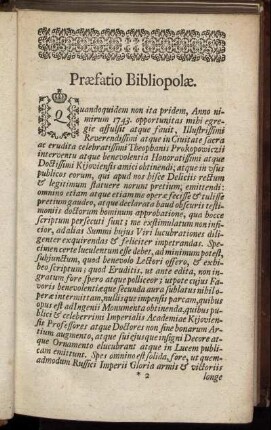 Præfatio Bibliopolæ.
Quandoquidem non ita pridem, Anno nimirum
1743. opportunitas mihi egregie
affulsit atque favit, Illustrissimi
Reverendissimi atque in Civitate sacra
ac erudita celebratissimi Theophanis Prokopowiczii
interventu atque benevolentia Honoratissimi atque
Doctissimi Kijoviensis amici obtinendi; atque in usus
publicos eorum, qui apud nos hisce Deliciis rectum
& legitimum statuere norunt pretium; emittendi:
omnino etiam atque etiam me operæ fecisse & tulisse
pretium gaudeo, atque declarata haud obscuri testimonii
doctorum hominum approbatione, qua hocce
scriptum persecuti sunt; ne exstimulatum non inficior,
ad alias Summi hujus Viri lucubrationes diligenter
exquirendas & feliciter impetrandas. Specimen
certe luculentum esse debet, ad minimum potest,
subjunctum, quod benevolo Lectori offero, & exhibeo
scriptum; quod Eruditis. ut ante edita, non ingratum
fore spero atque polliceor; utpote cujus Favoris
benevolentiæque secunda aura sublatus nihil operæ
intermittam, nullisque impensis parcam, quibus
opus est ad Ingenii Monumenta obtinenda, quibus publici
& celeberrimi Imperialis Academiæ Kijoviensis
Professores atque Doctores non sine bonarum Artium
augmento, atque suæ ejusque insigni Decore atque
Ornamento elucubrant atque in Lucem publicam
emittunt. Spes omnino est solida, fore, ut quemadmodum
Russici Imperii Gloria armis & victoriis
* 2 longe